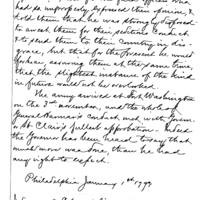 had so improperly expressed their opinions,
told them that he was strongly disposed
to arrest them for their seditious conduct &
to send them to their country in dis-
grace, but that for the present he would
forbear, assuring them at the same time,
that the slightest instance of the kind
in future would not be overlooked.
The army arrived at Fort Washington
on the 3d november, and the whole of
General Harmar's conduct met with Govern-
or St Clair's fullest approbation — Indeed
the Governor has been heard to say that
much more was done, than he had
any right to expect.
Philadelphia January 1st 1792